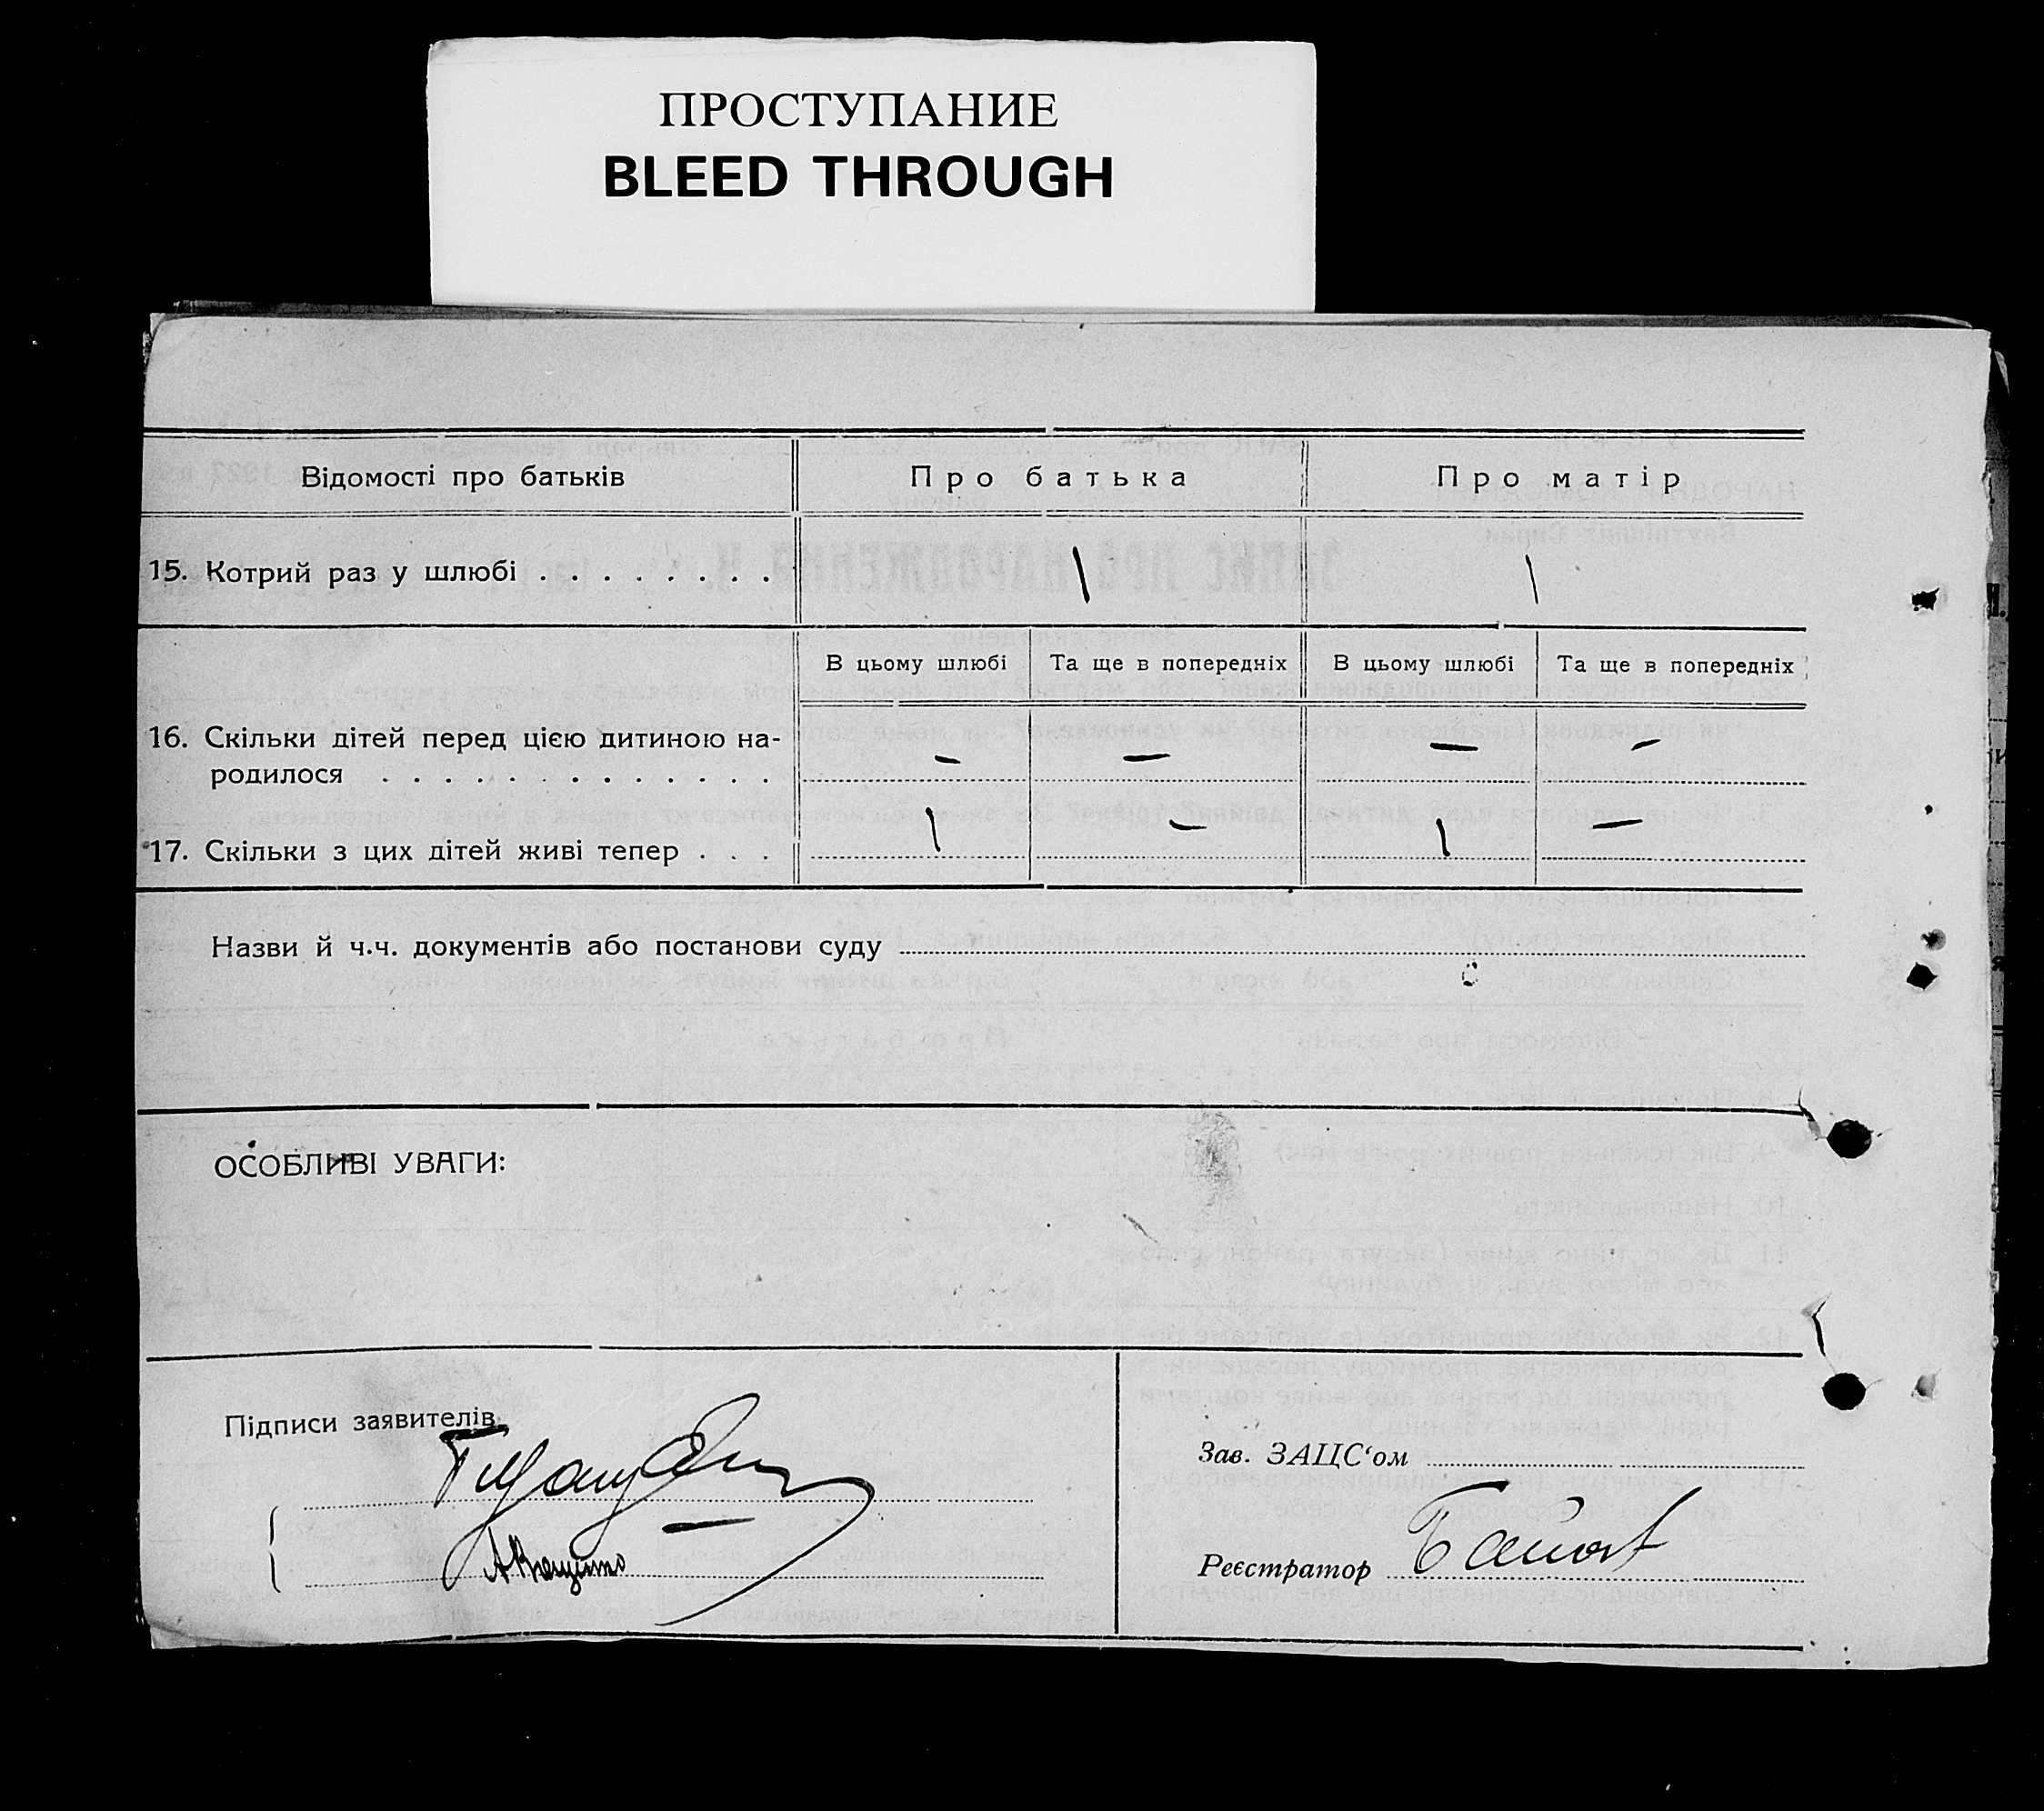 ПРОСТУПАНИЕ
BLEED THROUGH
Відомості про батьків
Про батька
Про матір
15. Котрий раз у шлюбі . . . . . . . .
1
1
В цьому шлюбі
Та ще в попередніх
В цьому шлюбі
Та ще в попередніх
16. Скільки дітей перед цією дитиною на-
родилося . . . . . . . . . . . . .
–
–
–
–
17. Скільки з цих дітей живі тепер . . .
1
–
1
–
Назви й ч.ч. документів або постанови суду
ОСОБЛИВІ УВАГИ:
Підписи заявителів
Зав. ЗАЦС‘ом
Реєстратор